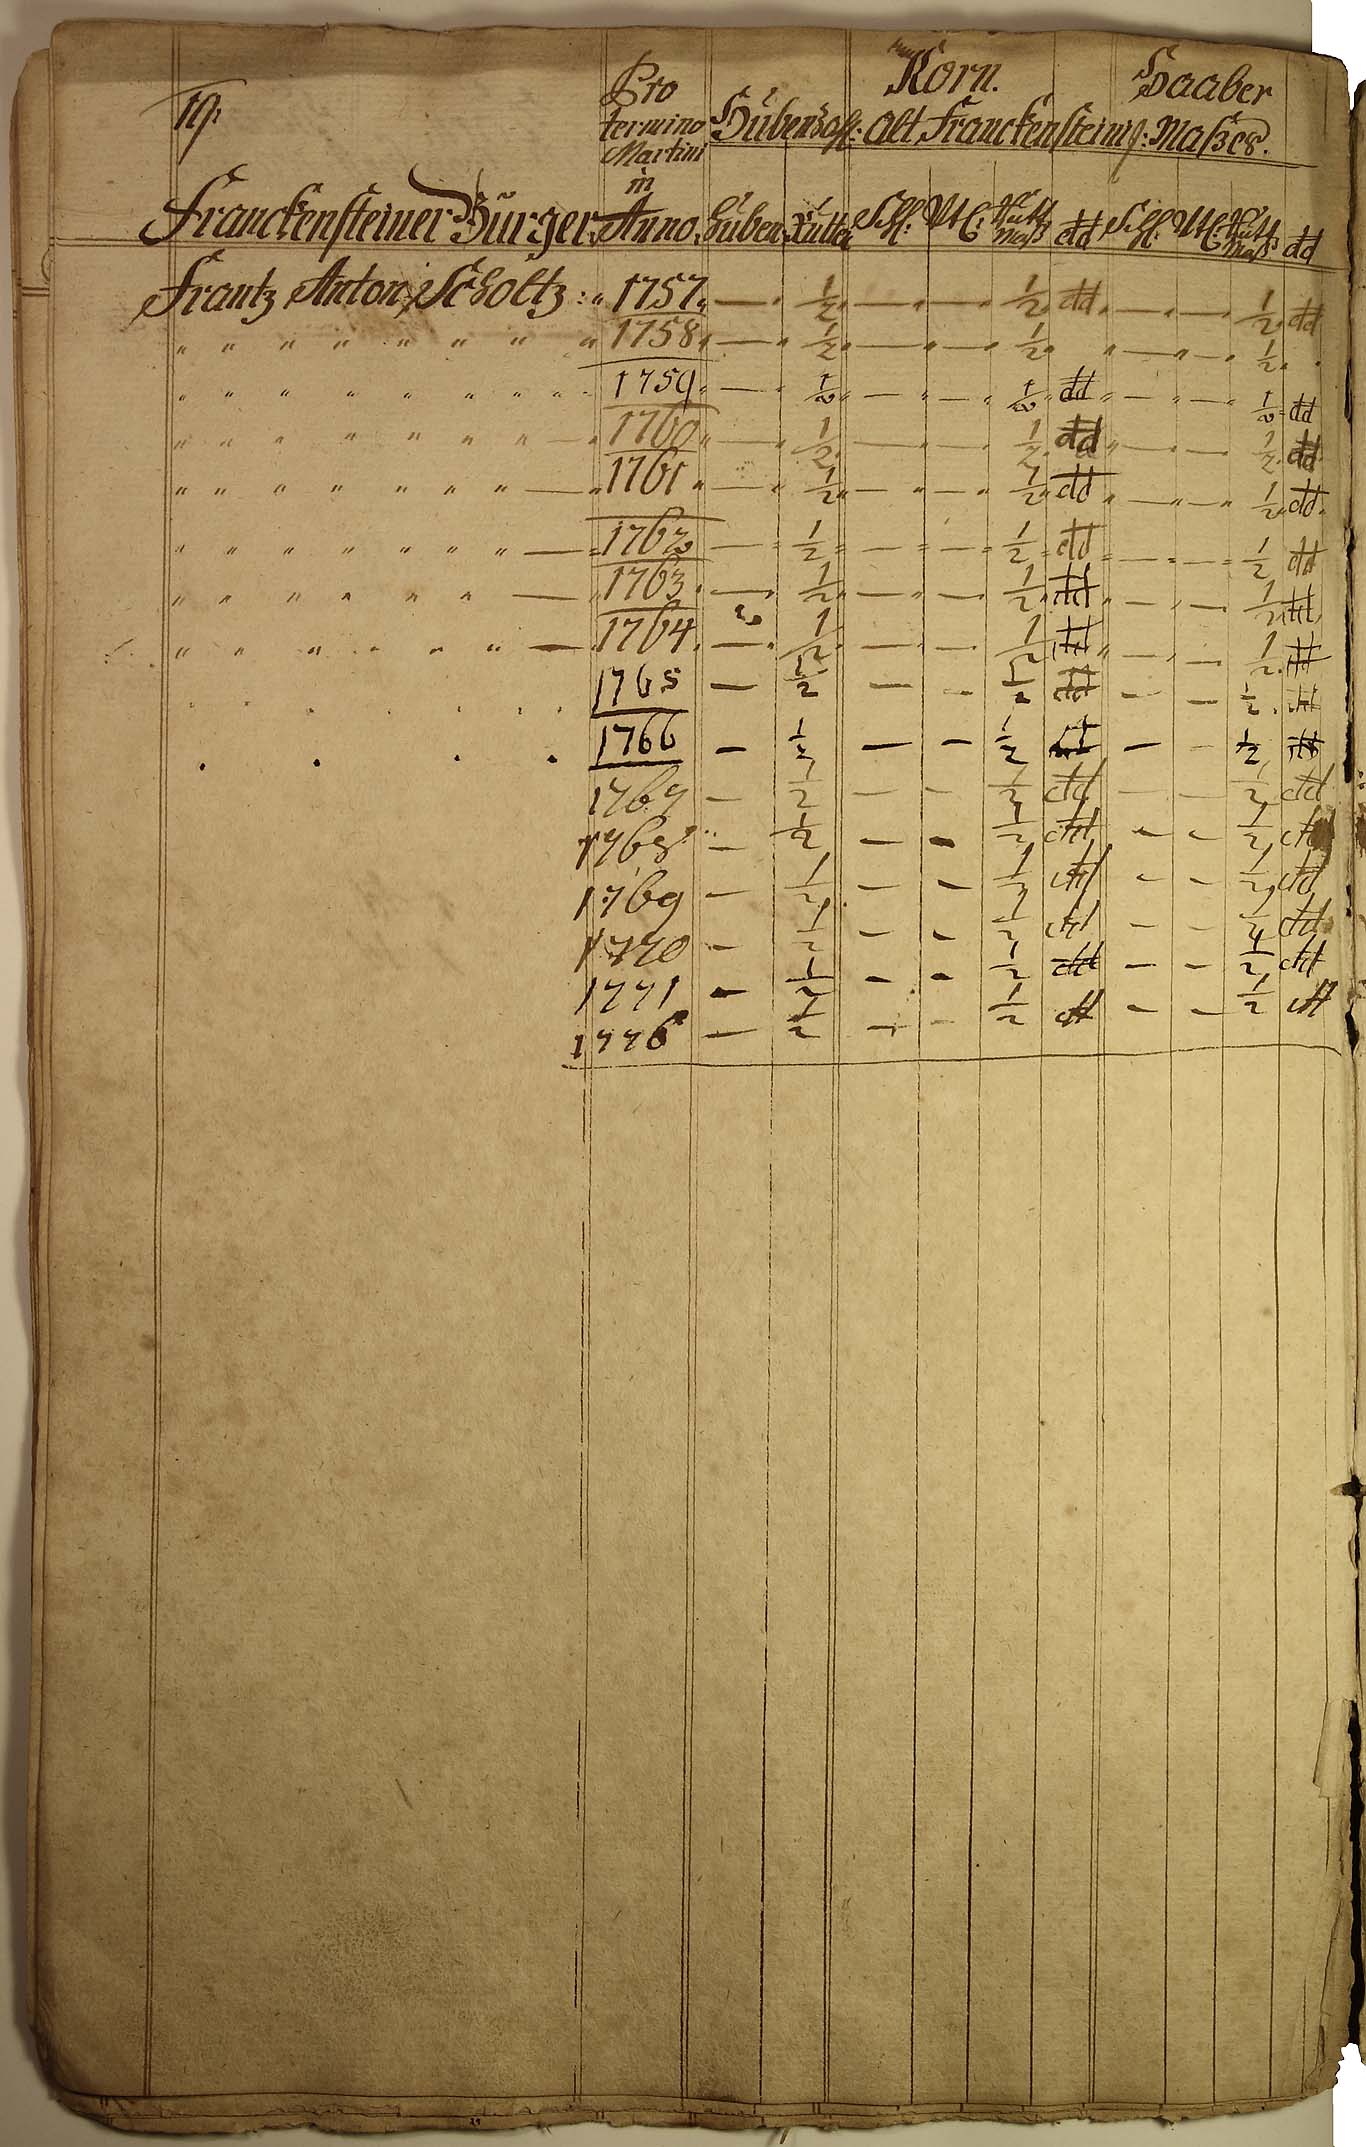 19.
Pro Korn. Haaber
termino Hubenzahl: Alt Franckensteini: Maßes.
Martini
in
Franckensteiner Bürger. Anno. Huben Rutten Schl: Vtl: Hutt Maß dd Schl: Vtl: Hutt Maß dd
Frantz Anton Scholtz: " 1757. — 1/2 — — 1/2 dd — — 1/2 dd
" " " " " " " " 1758. — 1/2 — — 1/2 " — — 1/2
" " " " " " " " 1759 — 1/2 — — 1/2 dd — — 1/2 dd
" " " " " " " — 1760 — 1/2 — — 1/2 dd — — 1/2 dd
" " " " " " " — 1761 — 1/2 — — 1/2 dd — — 1/2 dd
" " " " " " " — 1762 — 1/2 — — 1/2 dd — — 1/2 dd
" " " " " " — 1763 — 1/2 — — 1/2 dd — — 1/2 dd
" " " " " " — 1764 — 1/2 — — 1/2 dd — — 1/2 dd
" " " " " " 1765 — 1/2 — — 1/2 dd — — 1/2 dd
. . . . 1766 — 1/2 — — 1/2 dd — — 1/2 dd
1767 — 1/2 — — 1/2 dd — — 1/2 dd
1768 — 1/2 — — 1/2 dd — — 1/2 dd
1769 — 1/2 — — 1/2 dd — — 1/2 dd
1770 — 1/2 — — 1/2 dd — — 1/2 dd
1771 — 1/2 — — 1/2 dd — — 1/2 dd
1776 — 1/2 — — 1/2 dd — — 1/2 dd